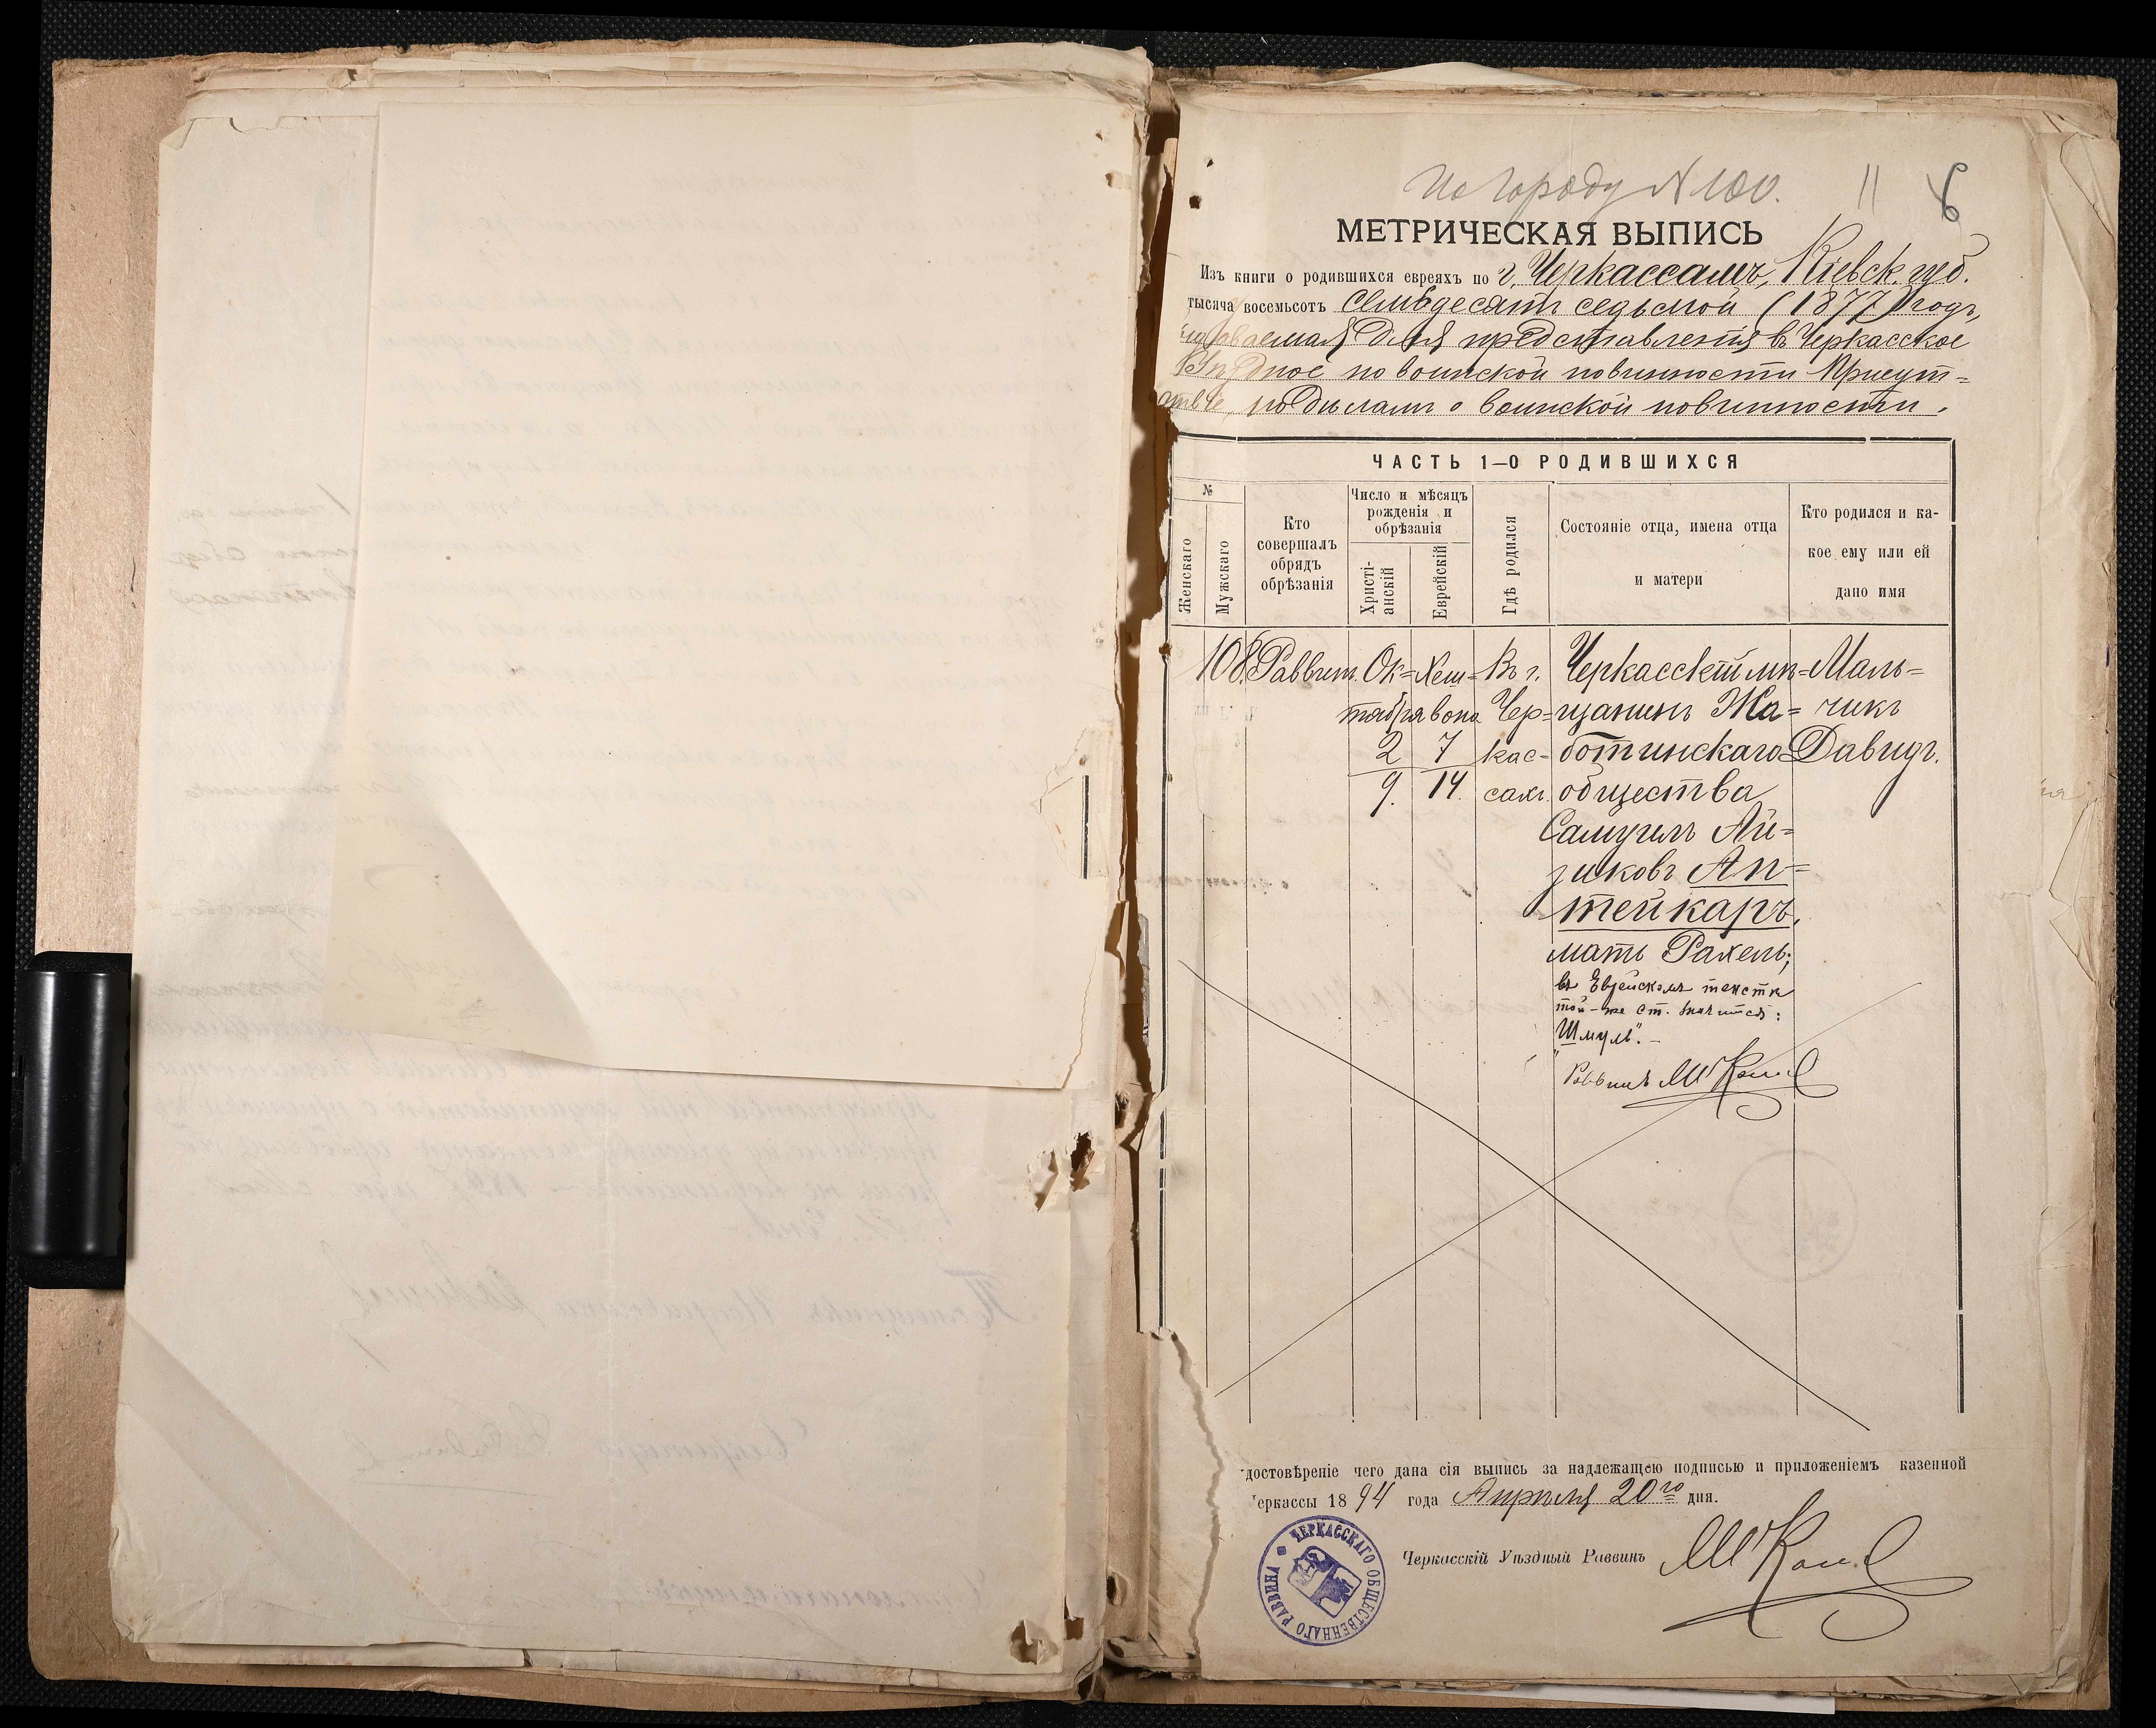 По городу N 100.
11
6
МЕТРИЧЕСКАЯ ВЫПИСЬ
Изъ книги о родившихся евреяхъ по г. Черкассамъ, Кіевск. губ.
тысяча восемьсотъ семьдесятъ седьмой (1877) годъ,
выдаваемая для представленія въ Черкасское
Уѣздное по воинской повинности Присут=
ствіе, по дѣламъ о воинской повинности.
ЧАСТЬ 1—О РОДИВШИХСЯ
№
Женскаго
Мужскаго
Кто совершалъ обрядъ обрѣзанія
Число и мѣсяцъ рожденія и обрѣзанія
Христі-анскій
Еврейскій
Гдѣ родился
Состояніе отца, имена отца и матери
Кто родился и ка-кое ему или ей дано имя
108. Раввин. Ок= Хеш= Въ г. Черкасскій мѣ= Маль=
тября вона Чер= щанинъ Жа= чикъ
2 7 кас= ботинскаго Давидъ.
9. 14. сахъ. общества
Самуилъ Ай=
зиковъ Ап=
тейкаръ,
мать Рахель;
въ Еврейскомъ текстѣ
той-же ст. значится:
"Шмуль".—
Раввинъ М Кан
достовѣреніе чего дана сія выпись за надлежащею подписью и приложеніемъ казенной
еркассы 1894 года Апрѣля 20го дня.
Черкасскій Уѣздный Раввинъ
ЧЕРКАССКАГО ОБЩЕСТВЕННАГО РАВВИНА